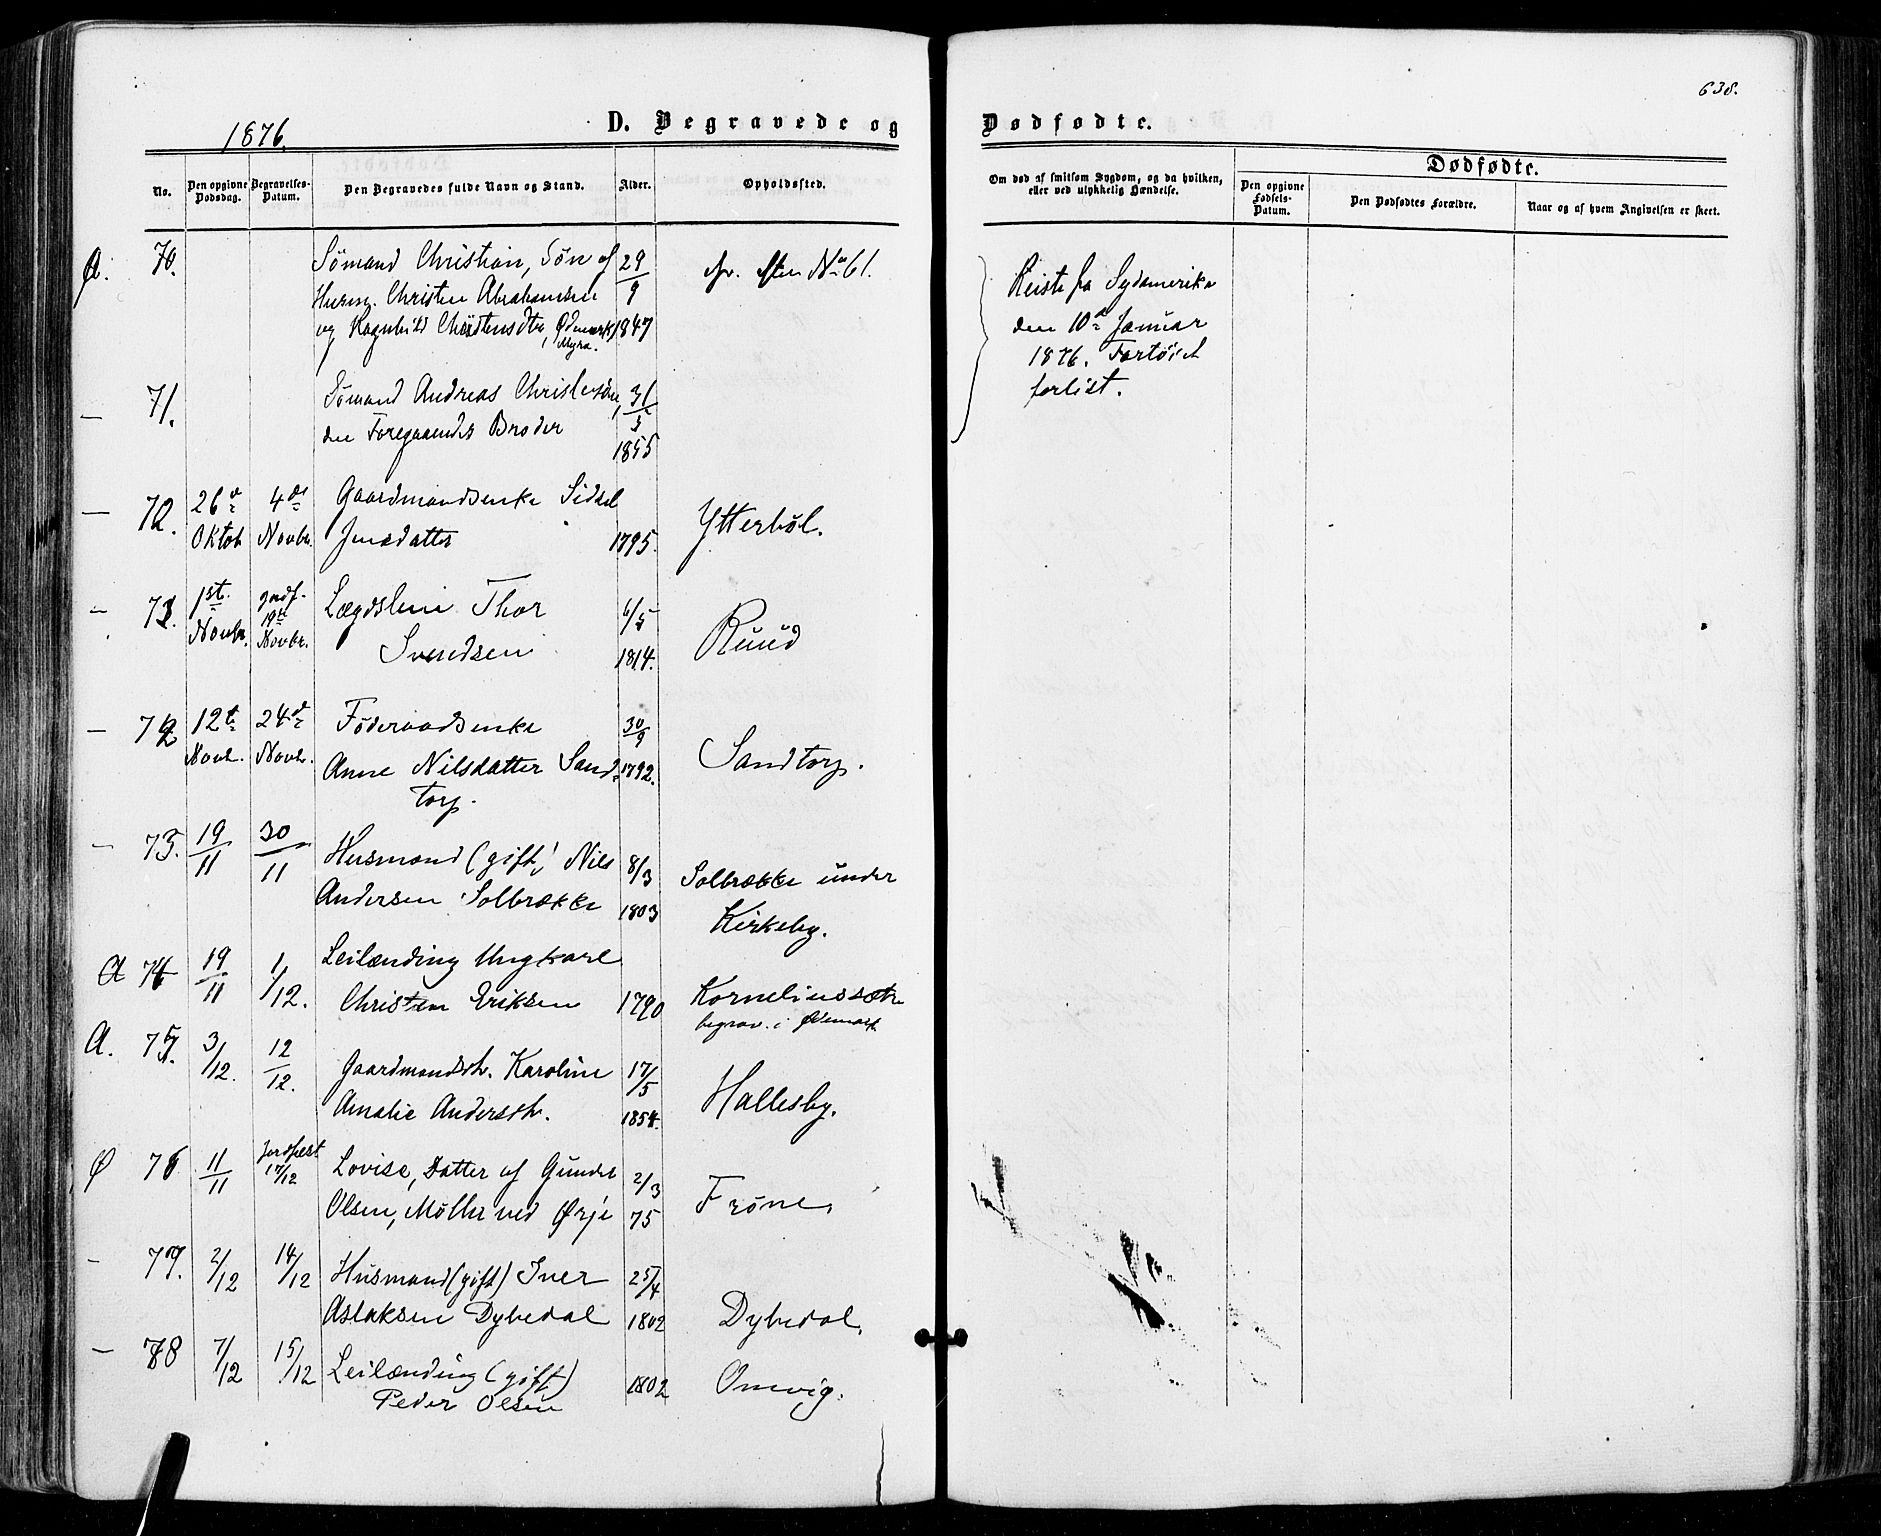 638.
1876.
D. Begravede og Dødfødte.
No.
Den opgivne Dødsdag.
Begravelses-Datum.
Den Begravedes fulde Navn og Stand.
Alder.
Opholdssted.
Om død af smitsom Sygdom, og da hvilken, eller ved ulykkelig Hændelse.
Dødfødte.
Den opgivne Fødsels-Datum.
Den Dødfødtes Forældre.
Naar og af hvem Angivelsen er skeet.
Ø. 70. Sømand Christian, Søn af 29/9
Husm. Christen Abrahamsen
og Ragnhild Christensdtr, Ødemark 1847
Myra.
efter No 61.
Reiste fra Sydamerika
den 10de Januar
1876. Fartøiet
forlist.
— 71. Sømand Andreas Christensen, 31/5
den Foregaaendes Broder 1855
— 72. 26de Oktob. 4de Novbr. Gaardmandsenke Sidsel
Jensdatter 1795. Ytterböl.
— 73. 1st. Novbr. jordf. 19de Novbr. Lægdslem Thor 6/5
Svendsen 1814. Ruud
— 72 12te Novb. 24de Novb. Føderaadsenke 30/9
Anne Nilsdatter Sand- 1792. Sandtorp.
torp.
— 73. 19/11 30/11 Husmand (gift) Nils 8/3 Solbrække under
Andersen Solbrække 1803 Kirkeby.
A 74 19/11 1/12. Leilænding Ungkarl
Christen Eriksen 1790 Korneliussætr
begrav. i Ødemark
A. 75. 3/12. 12/12. Gaardmandsdtr. Karoline 17/5
Amalie Andersdtr. 1854. Hallesby.
Ø 76 11/11 Jordfæst 17/12 Lovise, Datter af Gunder 2/3
Olsen, Møller ved Ørje 75 Frøne,
— 77. 2/12 14/12 Husmand (gift) Iver 25/4
Aslaksen Dybedal 1802 Dybedal,
— 78 7/12 15/12 Leilænding (gift) 1802 Omvig.
Peder Olsen